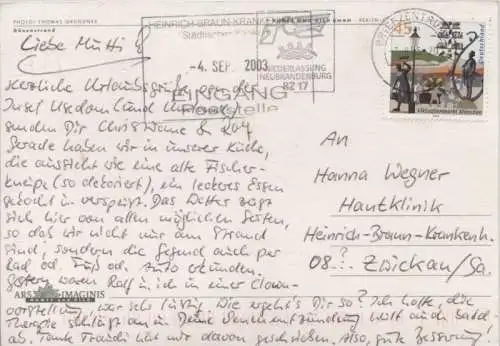 PHOTO: THOMAS GRUNDNER
Dünenstrand
Liebe Mutti!
HEINRICH-BRAUN-KRANK
Städtisches
-4. SEP. 2003
EINGANG
Poststelle
NIEDERLASSUNG
NEUBRANDENBURG
BZ 17
BRIEFZENTRUM
45
Deutschland
Herzliche Urlaubsgrüße von der
Insel Usedom (und Umgebung)
senden Dir Christiane & Ralf
Gerade haben wir in unserer Küche,
die aussieht wie eine alte Fischer-
kneipe (so dekoriert), ein leckeres Essen
gekocht u. verspeist. Das Wetter zeigt
sich hier von allen möglichen Seiten,
so daß wir nicht nur am Strand
sind, sondern die Gegend auch per
Rad od. Fuß od. Auto erkunden.
Gestern waren Ralf u. ich in einer Clown-
vorstellung, war sehr lustig. Wie ergeht's Dir so? Ich hoffe, die
Therapie schlägt an u. Deine entzündung hilft auch bald
ab. Tante Traudi hat mir davon geschrieben. Also, gute Besserung!
ARS IMAGINIS
An
Hanna Wegner
Hautklinik
Heinrich-Braun-Krankenh.
08? Zwickau/Sa.